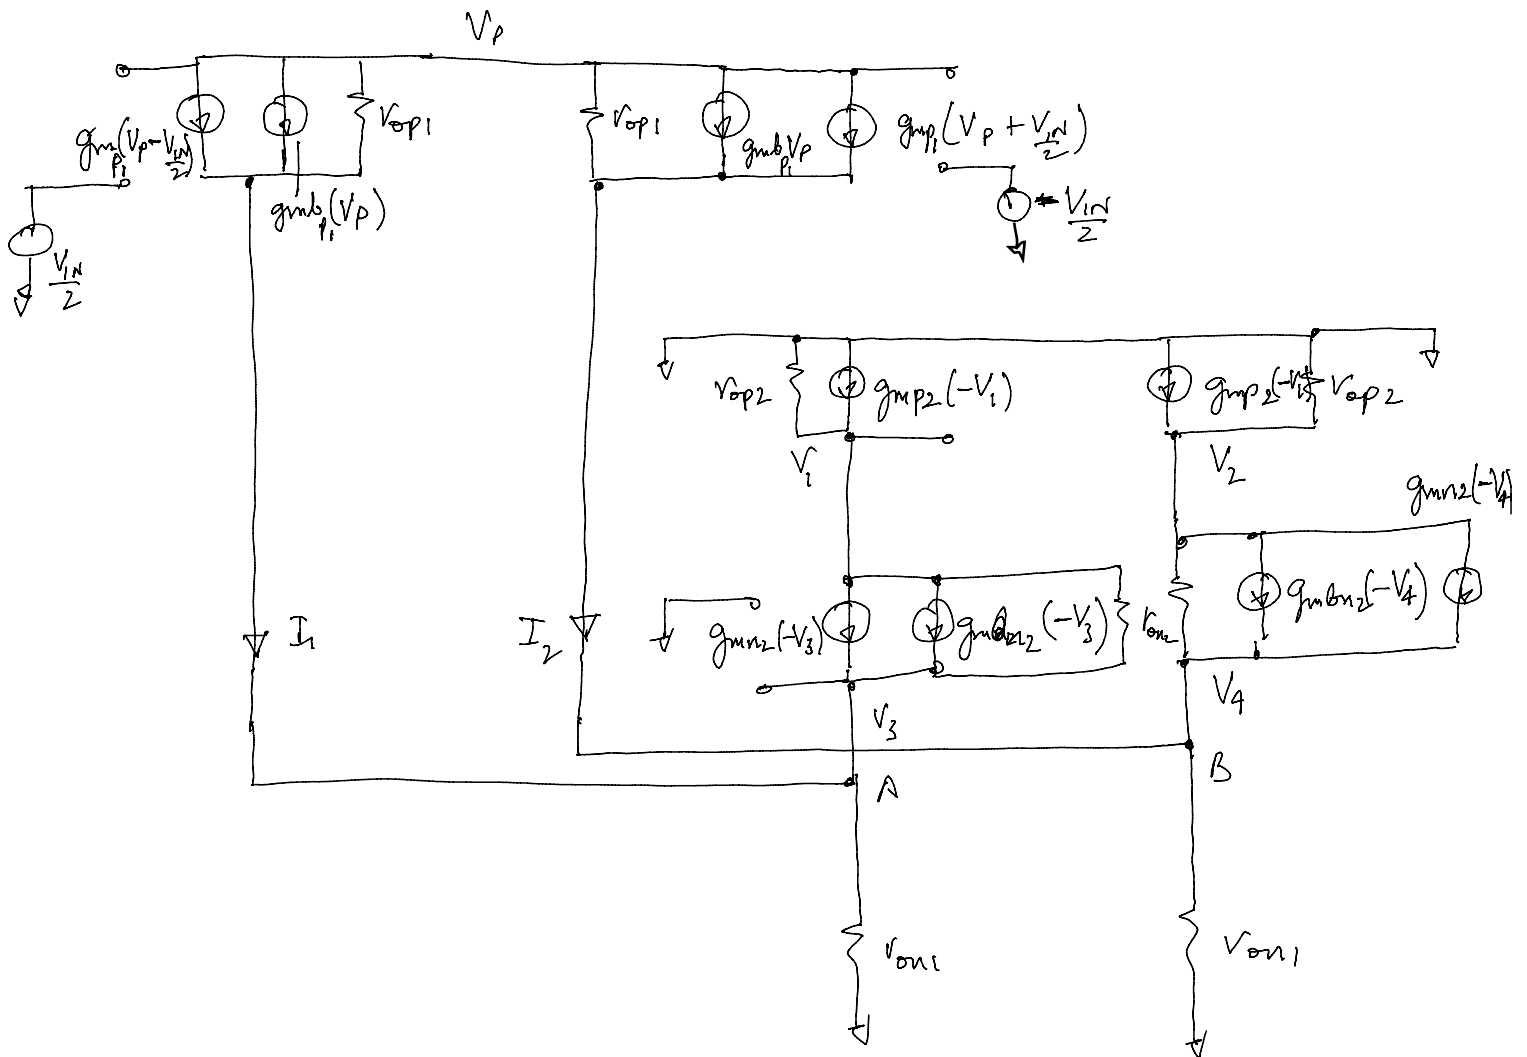 Vp
gmp1(Vp-VIN/2)
rop1
gmbp1(Vp)
VIN/2
rop1
gmbp1Vp
gmp1(Vp + VIN/2)
-VIN/2
rop2
gmp2(-V1)
gmp2(-V1)
rop2
V1
V2
gmn2(-V4)
gmn2(-V3)
gmbn2(-V3)
ron2
gmbn2(-V4)
I1
I2
V3
V4
A
B
ron1
ron1